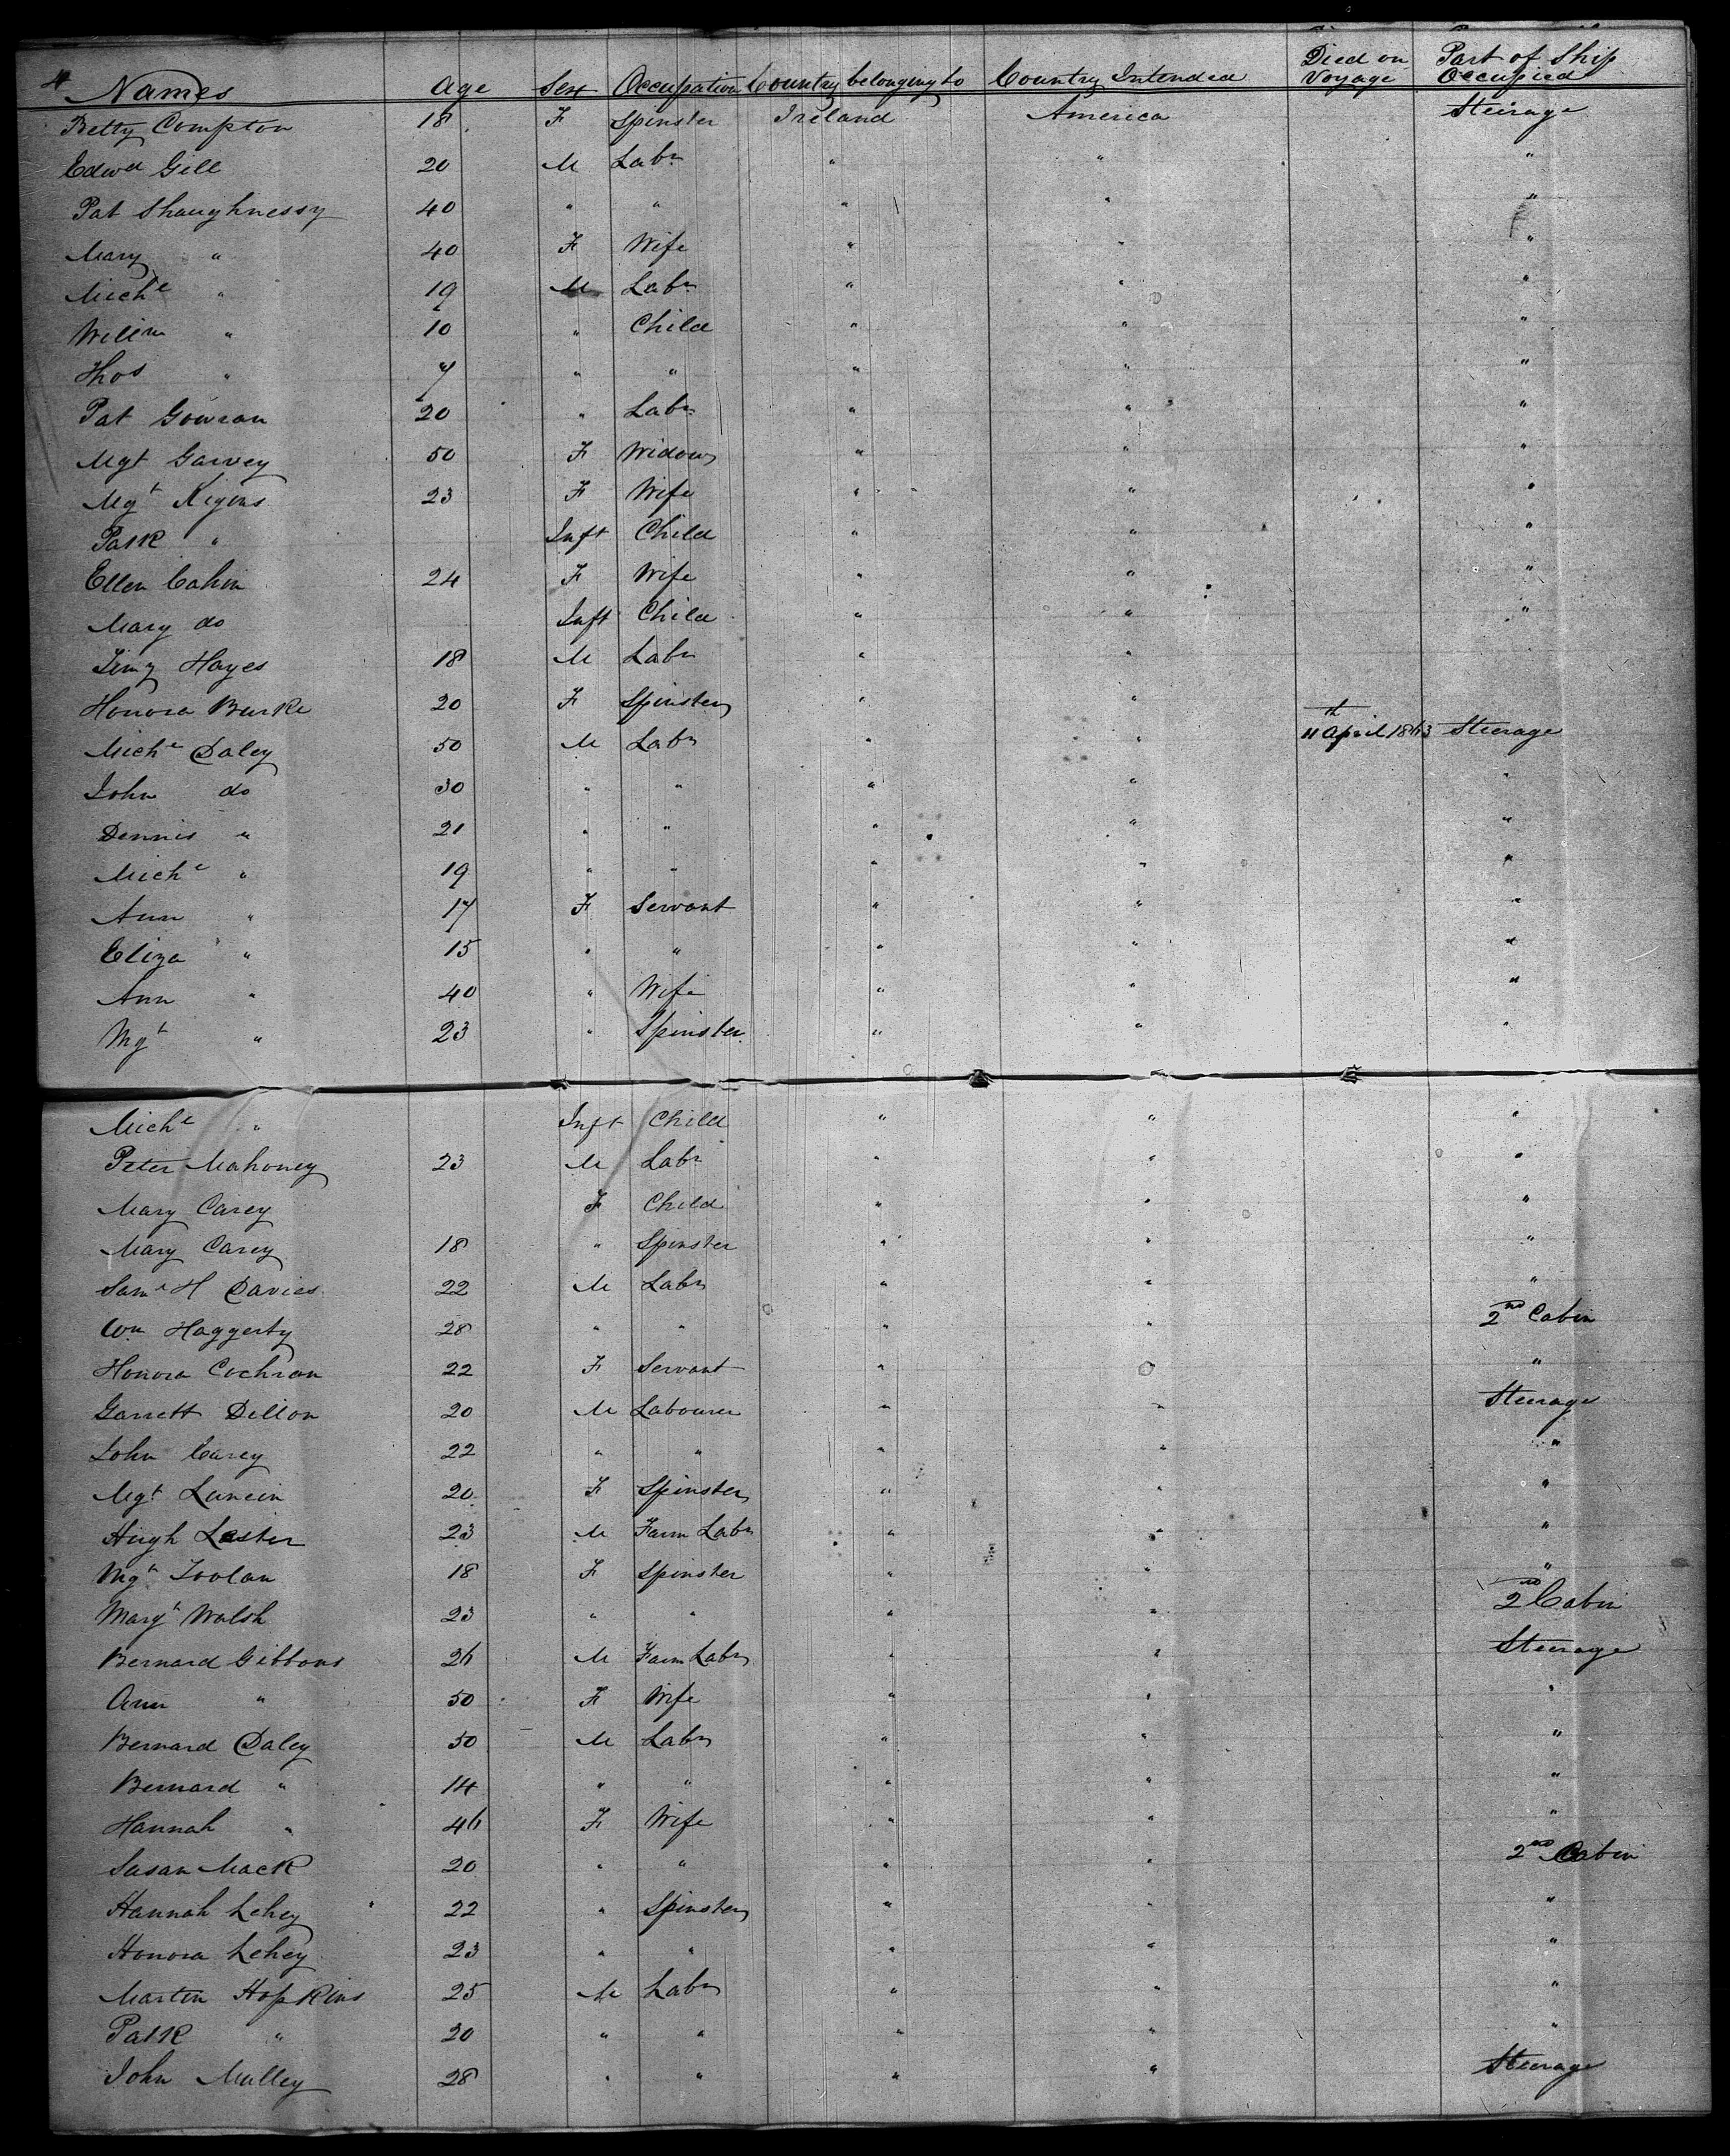 4 Names Age Sex Occupation Country belonging to Country Intended Died on Voyage Part of Ship Occupied
Betty Compton 18 F Spinster Ireland America Steerage
Edwd Gill 20 M Labr " " "
Pat Shaughnessy 40 " " " " "
Mary " 40 F Wife " " "
Michl " 19 M Labr " " "
Willm " 10 " Child " " "
Thos " 7 " " " " "
Pat Gowran 20 " Labr " " "
Mgt Garvey 50 F Widow " " "
Mgt Kigens 23 F Wife " " "
Patk " Inft Child " " "
Ellen Cahin 24 F Wife " " "
Mary do Inft Child " " "
Timy Hayes 18 M Labr " "
Honora Burke 20 F Spinster " "
Michl Daley 50 M Labr " " 11th April 1863 Steerage
John do 30 " " " " "
Dennis " 21 " " " " "
Michl " 19 " " " " "
Ann " 17 F Servant " " "
Eliza " 15 " " " " "
Ann " 40 " Wife " " "
Mgt " 23 " Spinster " " "
Michl " Inft Child " " "
Peter Mahoney 23 M Labr " " "
Mary Carey F Child " " "
Mary Carey 18 " Spinster " " "
Saml H Davies 22 M Labr " " "
Wm Haggerty 28 " " " " 2nd Cabin
Honora Cochran 22 F Servant " "
Garrett Dillon 20 M Labourer " " Steerage
John Carey 22 " " " " "
Mgt 20 F Spinster " " "
Hugh Lester 23 M Farm Labr " " "
Mgt Toolan 18 F Spinster " " "
Margt Walsh 23 " " " " 2nd Cabin
Bernard Gibbons 26 M Farm Labr " " Steerage
Ann " 50 F Wife " " "
Bernard Daley 50 M Labr " " "
Bernard " 14 " " " " "
Hannah " 46 F Wife " " "
Susan Mack 20 " " " " 2nd Cabin
Hannah Lehey 22 " Spinster " " "
Honora Lehey 23 " " " " "
Martin Hopkins 25 M Labr " " "
Patk " 20 " " " " "
John Mulley 28 " " " " Steerage